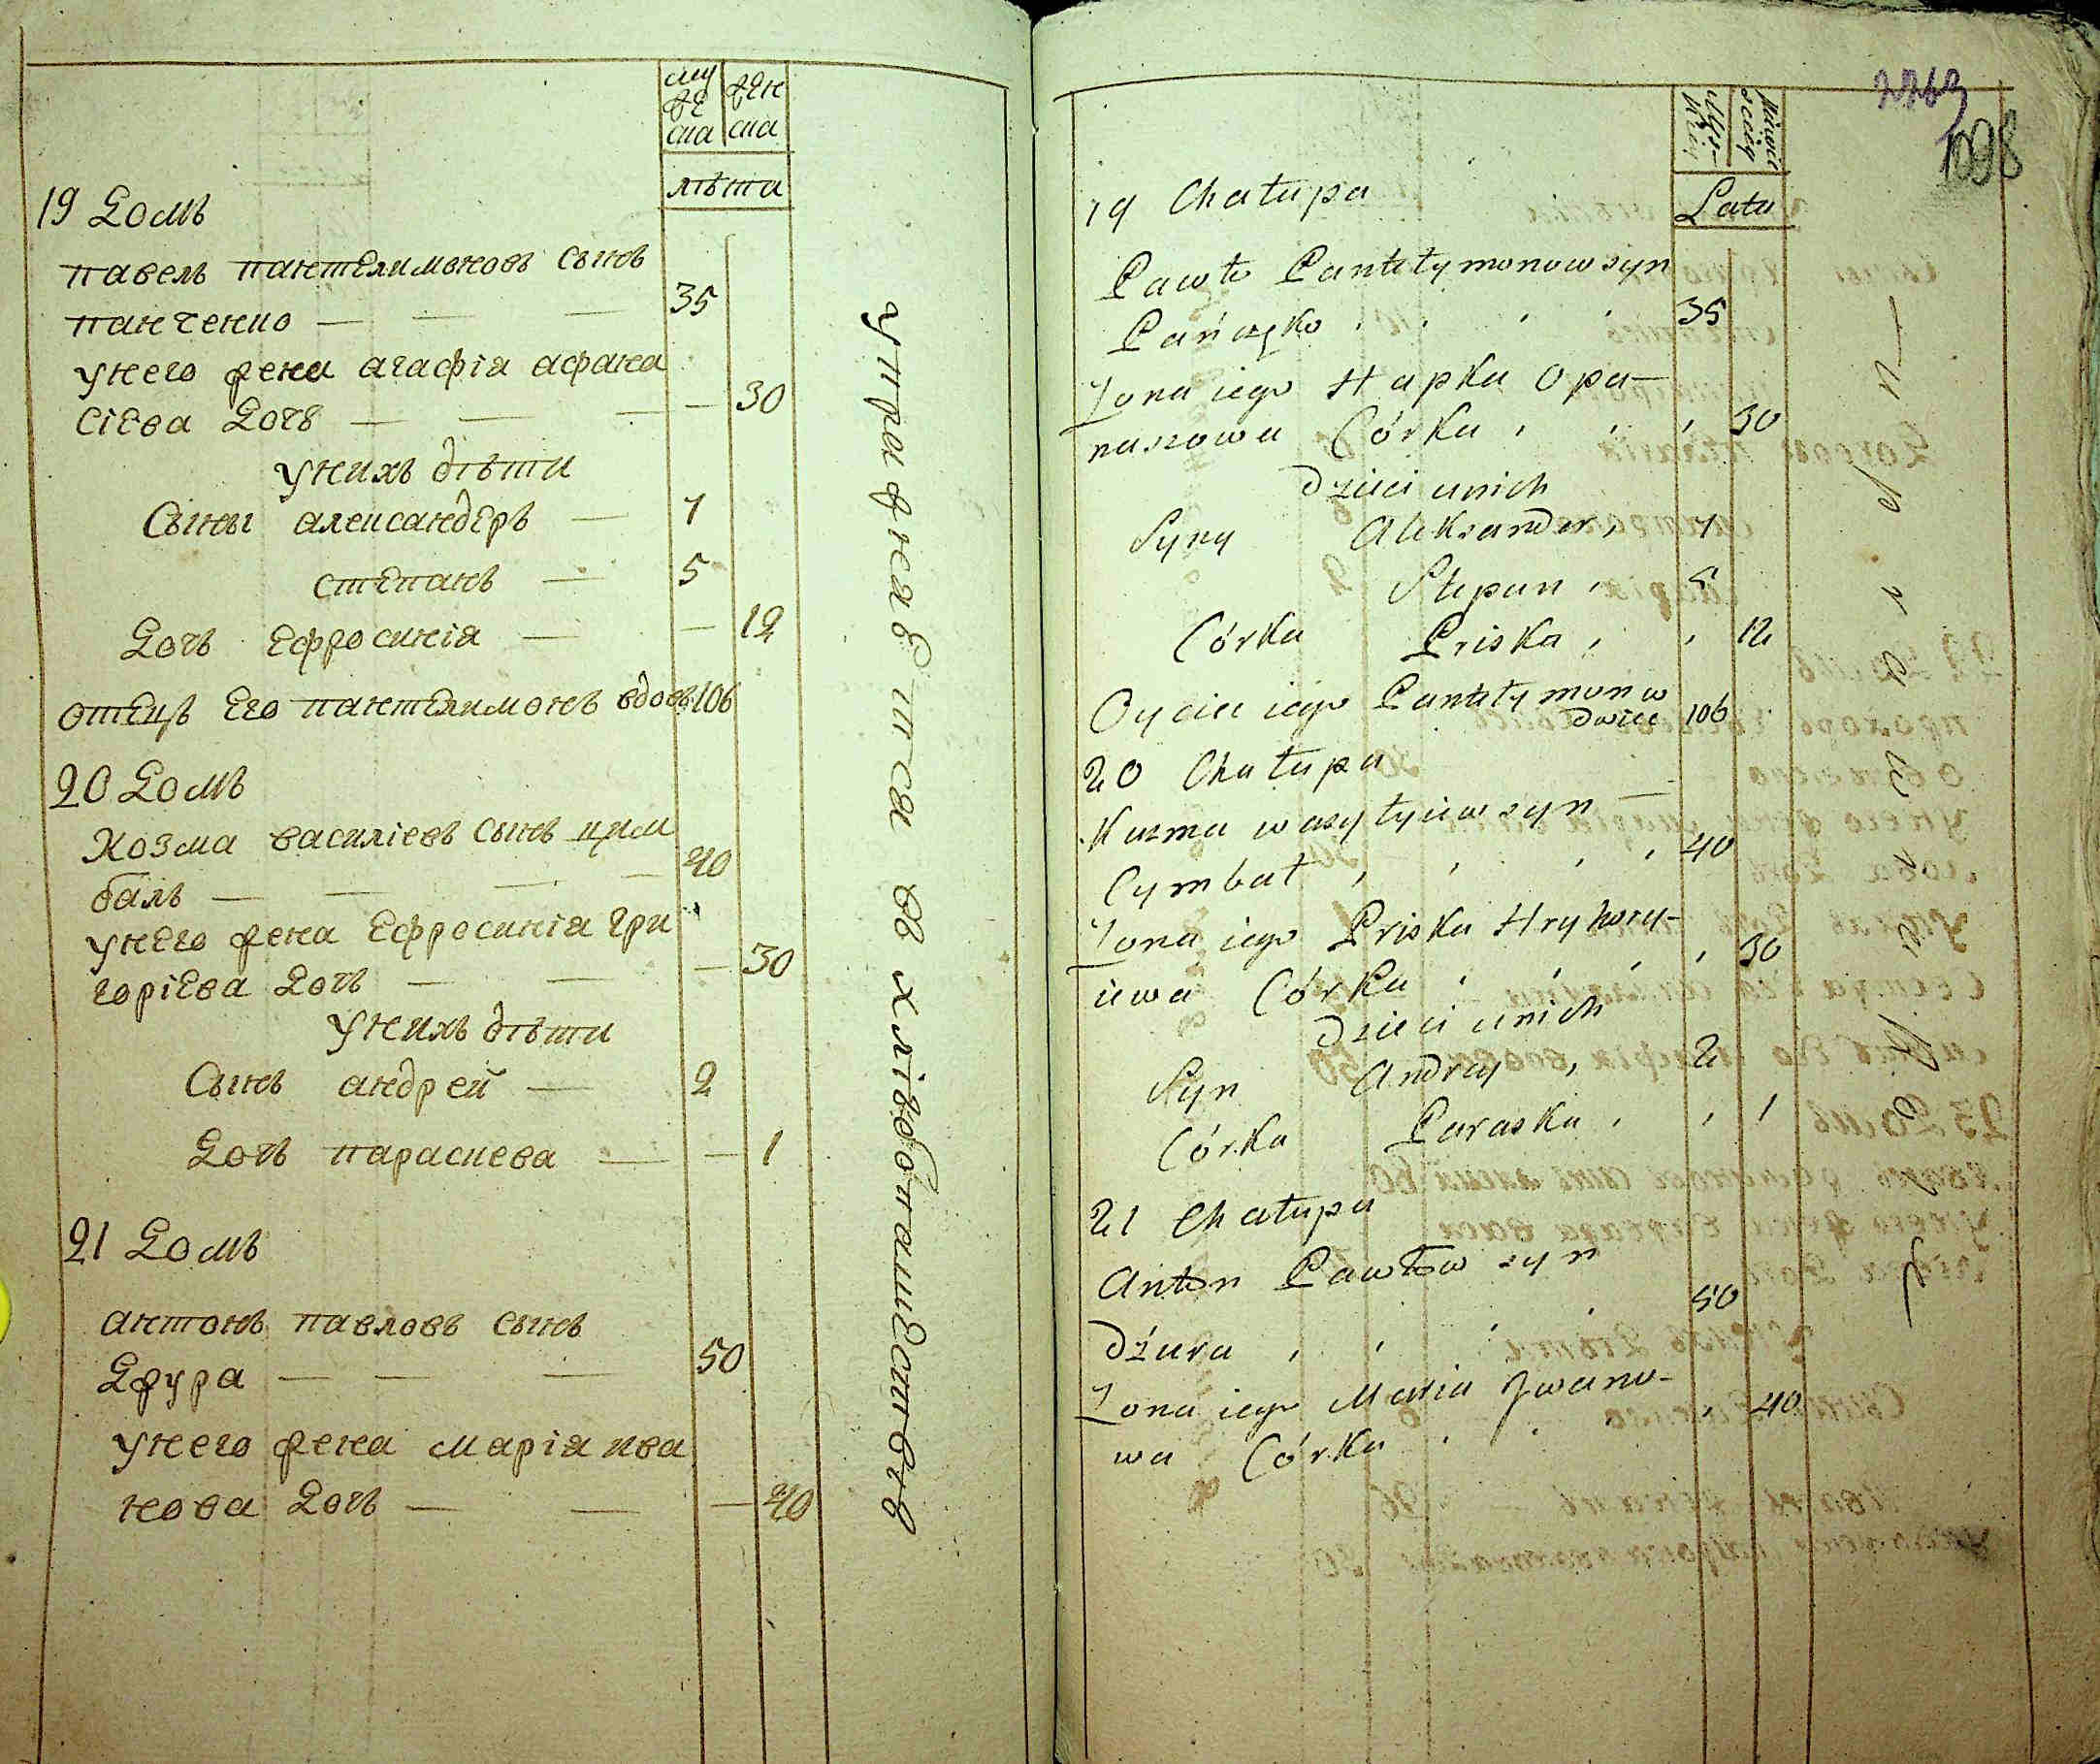 муже
ска
жен
ска
лѣта
19 Домъ
павелъ пантелимоновъ сынъ
панченко — — — 35
унего жена агафія афана
сіева дочь — — — — 30
унихъ дѣти
Сыны александеръ — 7
степанъ — 5
Дочь ефросинія — — 12
отецъ его пантелимонъ вдовъ 106
20 Домъ
Козма василіевъ сынъ цим
балъ — — — — 40
унего жена ефросинія гри
горіева дочь — — — 30
унихъ дѣти
Сынъ андрей — 2
Дочь параскева — — 1
21 Домъ
антонъ павловъ сынъ
Джура — — — 50
унего жена марія ива
нова дочь — — — 40
упражняется въ хлѣбопашествѣ
1098
Latu
19 Chałupa
Pawło Pantełymonow syn
Pańczęko 35
Żona iego Hapka Opa-
naszowa Córka 30
Dzieci unich
Syny Aleksander 7
Stepan 5
Córka Priska 12
Oyciec iego Pantełymon w
dwiec 106
20 Chałupa
Kuzma wasyłyiew syn —
Cymbał 40
Żona iego Priska Hryhory-
iewa Córka 30
Dzieci unich
Syn Andrey 2
Córka Paraska 1
21 Chałupa
Anton Pawłow syn
Dżura 50
Żona iego Maria Jwano-
wa Córka 40